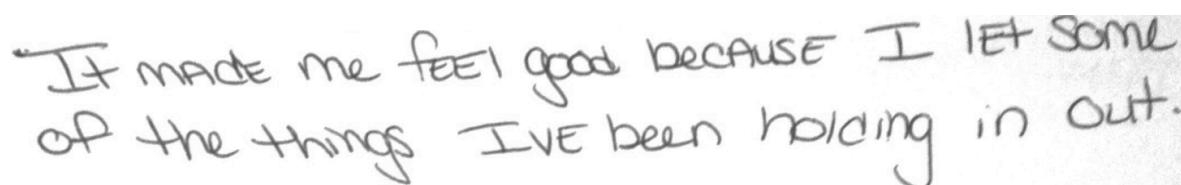 It made me feel good because I let some
of the things IVE been holding in out.